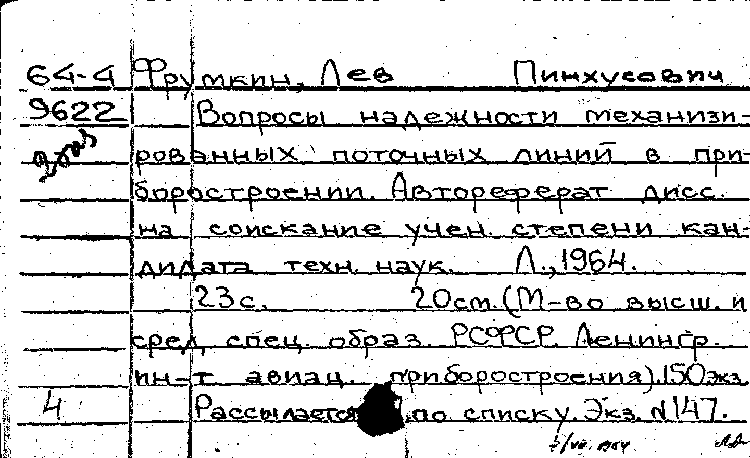 64-4 Фрумкин, Лев Пинхусович
9622 Вопросы надежности механизи-
2экз рованных поточных линий в при-
боростроении. Автореферат дисс.
на соискание учен. степени кан-
дидата техн. наук. Л., 1964.
23с. 20см. (М-во высш. и
сред. спец. образ. РСФСР. Ленингр.
ин-т авиац. приборостроения). 150 экз.
4 Рассылается по списку. Экз. №147.